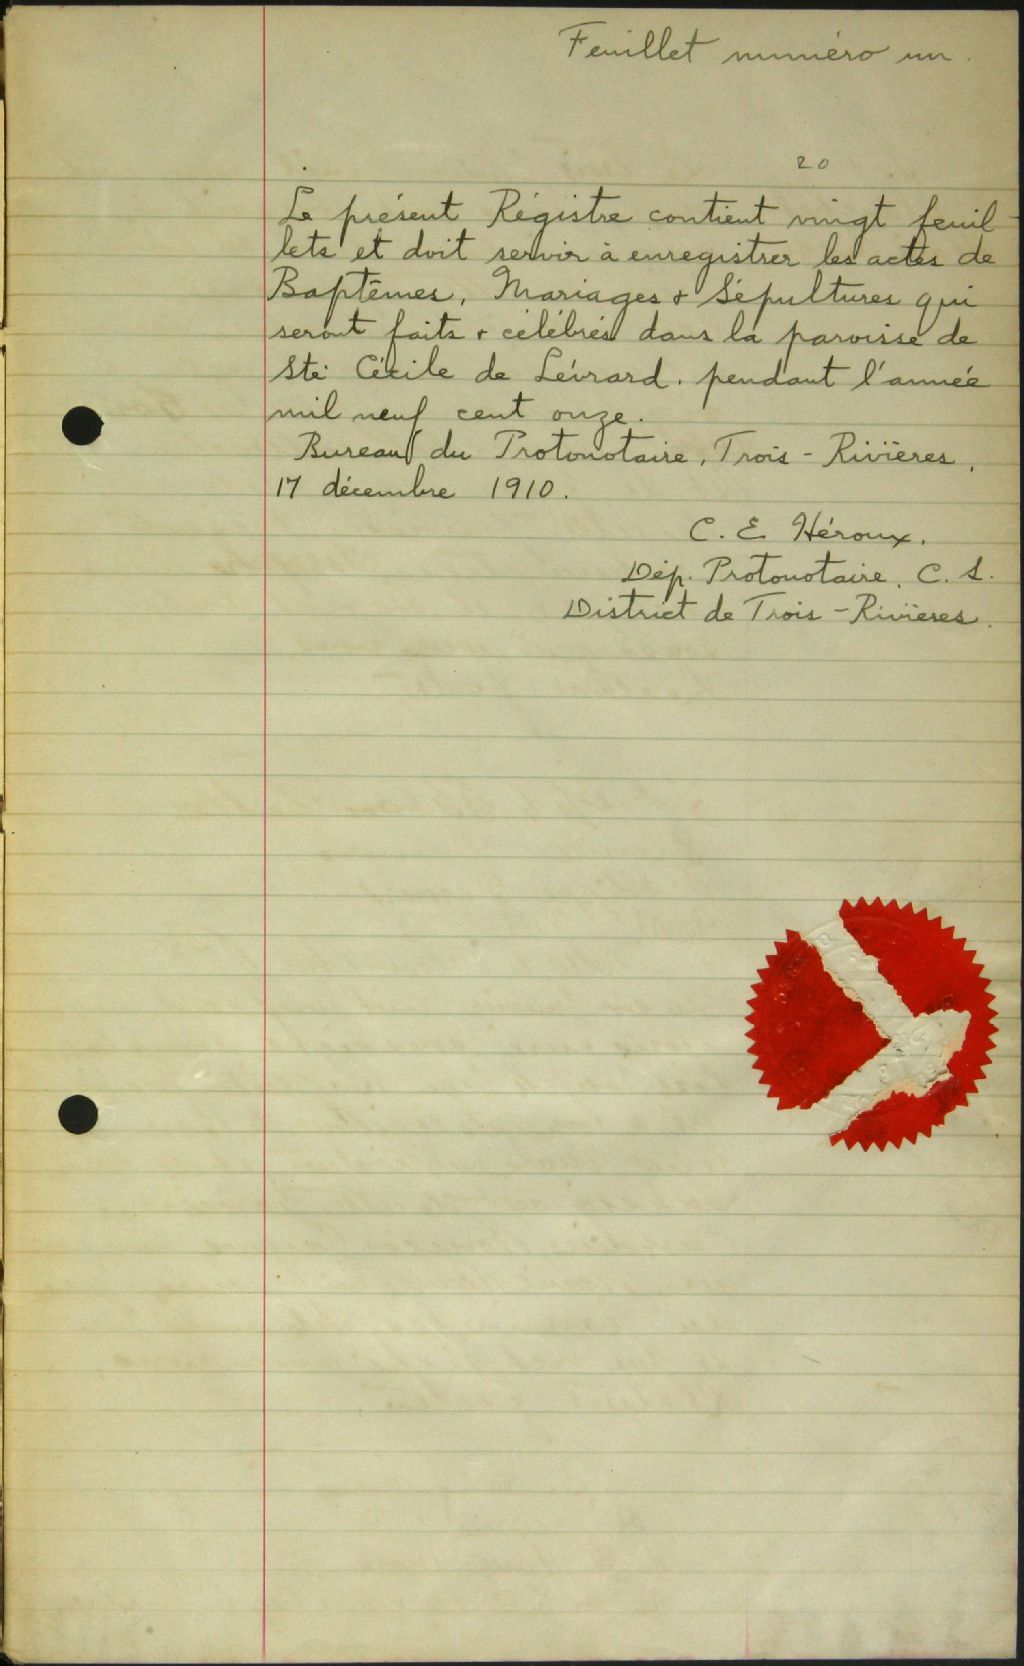 Feuillet numéro un.
20
Le présent Régistre contient vingt feuil-
lets et doit servir à enregistrer les actes de
Baptêmes, Mariages & Sépultures qui
seront faits & célébrés dans la paroisse de
Ste Cécile de Lévrard, pendant l'année
mil neuf cent onze.
Bureau du Protonotaire, Trois-Rivières,
17 décembre 1910.
C. E. Héroux,
Dép. Protonotaire, C. S.
District de Trois-Rivières.